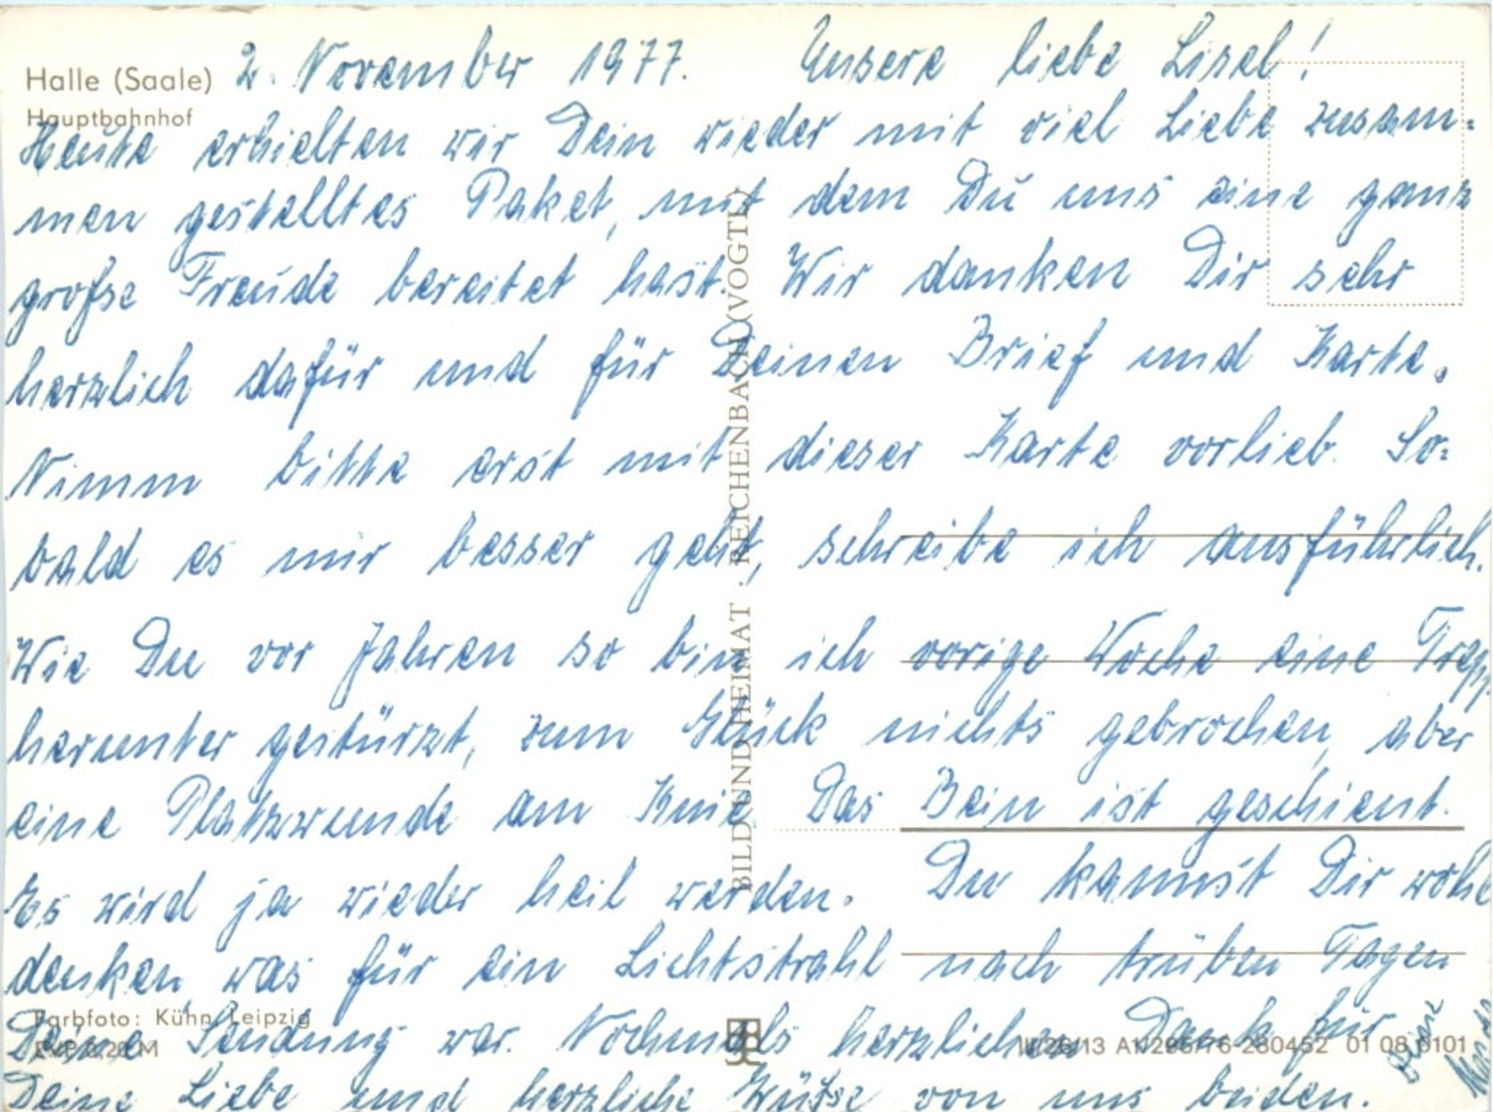 Halle (Saale)
Hauptbahnhof
2. November 1977. Unsere liebe Lisel!
Heute erhielten wir Dein wieder mit viel Liebe zusam-
men gestelltes Paket, mit dem Du uns eine ganz
große Freude bereitet hast. Wir danken Dir sehr
herzlich dafür und für Deinen Brief und Karte.
Nimm bitte erst mit dieser Karte vorlieb. So-
bald es mir besser geht, schreibe ich ausführlich.
Wie Du vor Jahren so bin ich vorige Woche eine Trepp
herunter gestürzt, zum Glück nichts gebrochen, aber
eine Platzwunde am Knie. Das Bein ist geschient.
Es wird ja wieder heil werden. Du kannst Dir wohl
denken, was für ein Lichtstrahl nach trüben Tagen
Deine Sendung war. Nochmals herzlichen Dank für
Deine Liebe und herzliche Grüße von uns beiden.
BILD UND HEIMAT . REICHENBACH (VOGTL)
Farbfoto: Kühn, Leipzig
III/26/13 A1/295/76-280452 01 08 0101